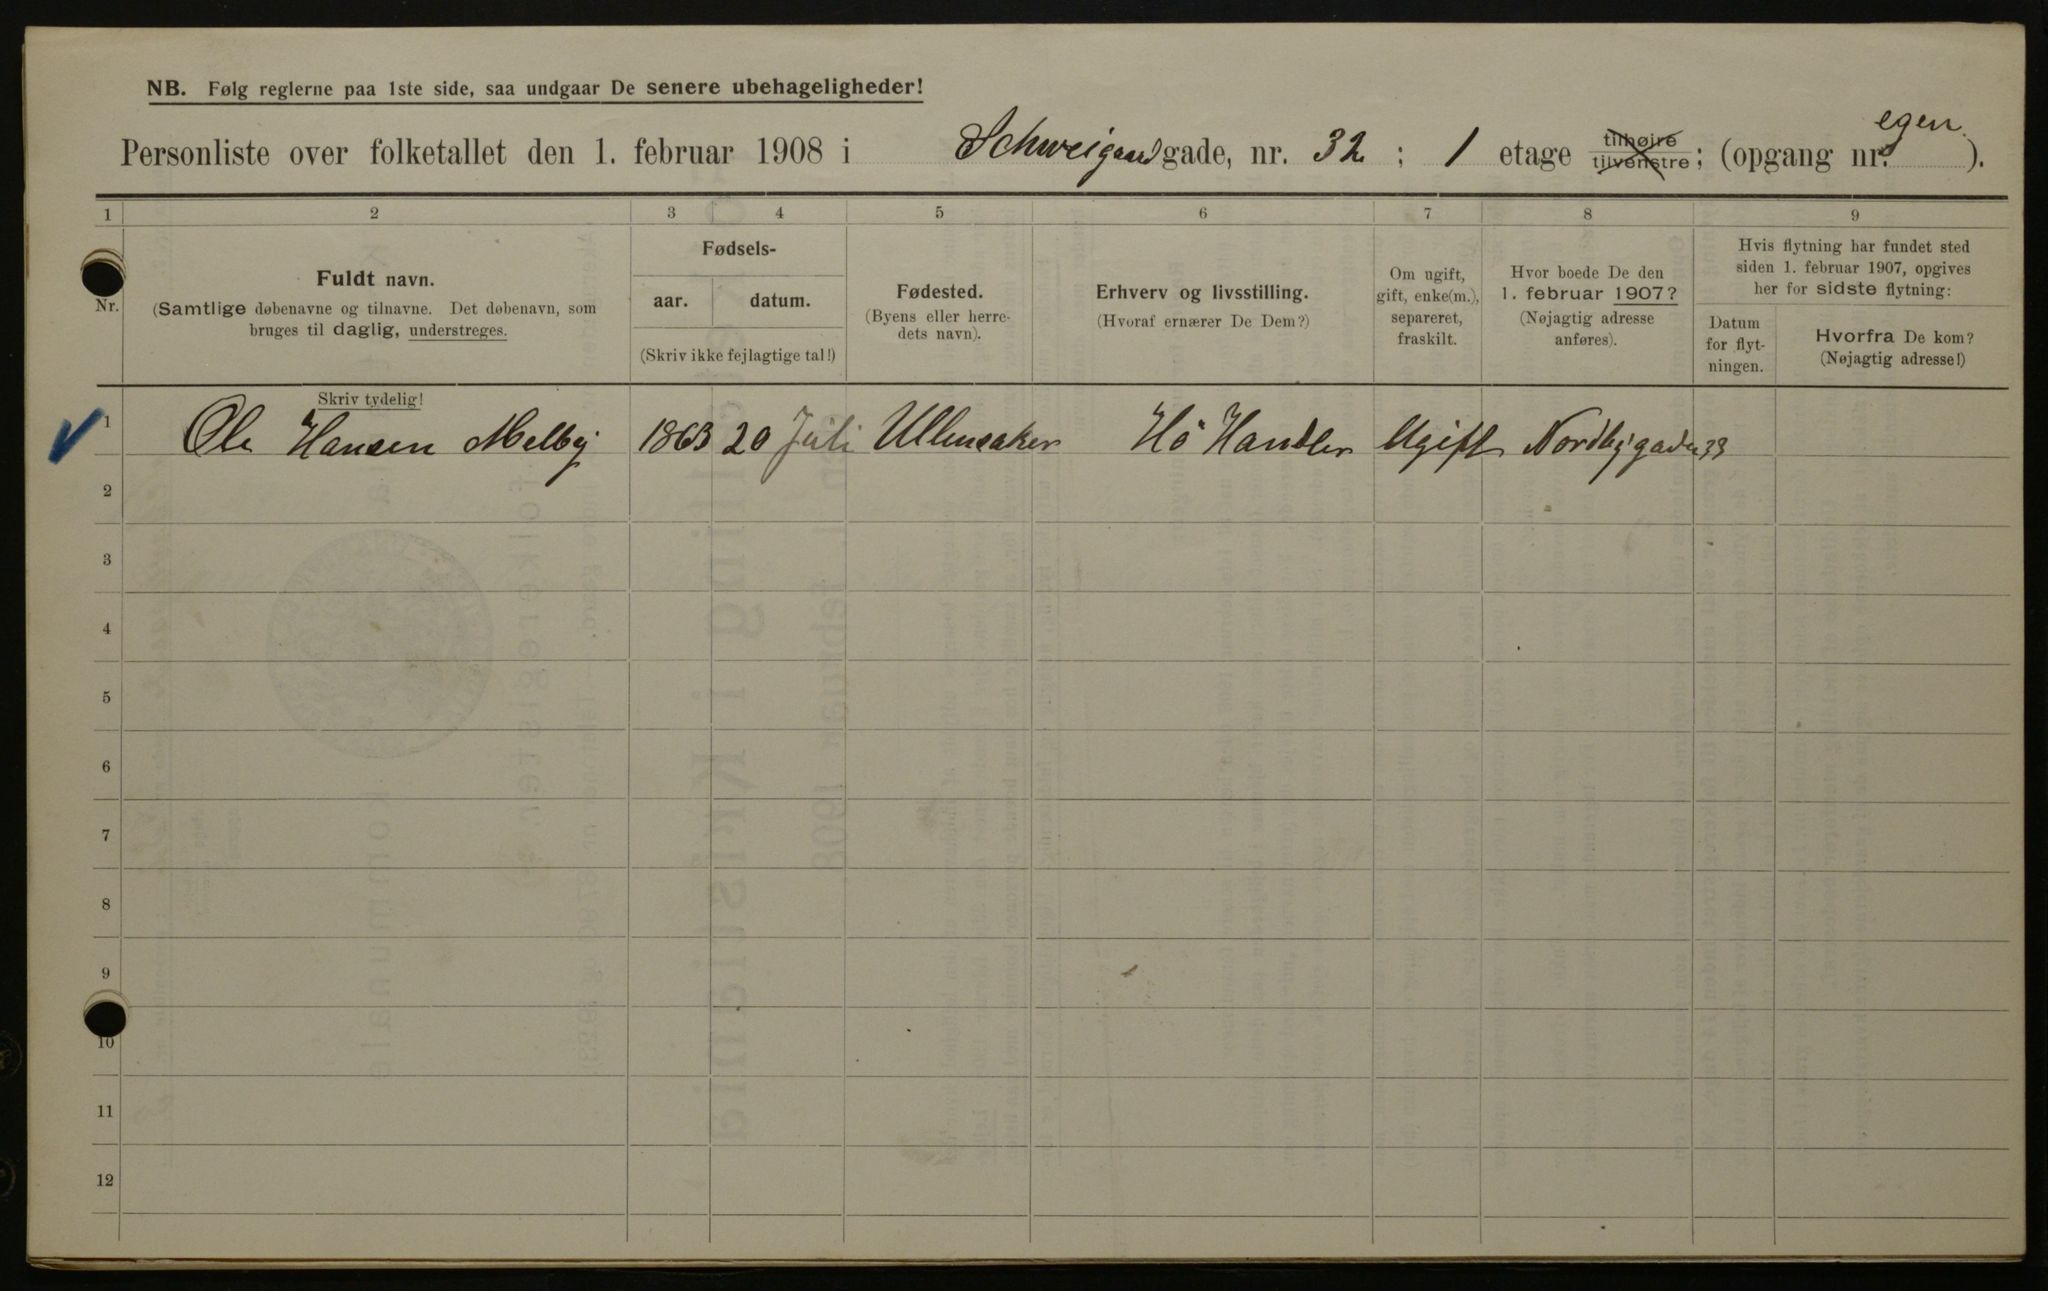 NB. Følg reglerne paa 1ste side, saa undgaar De senere ubehageligheder!
Personliste over folketallet den 1. februar 1908 i Schweigaardgade, nr. 32 ; 1 etage tilhøire tilvenstre ; (opgang nr. egen ).
1 2 3 4 5 6 7 8 9
Nr.
Fuldt navn.
(Samtlige døbenavne og tilnavne. Det døbenavn, som
bruges til daglig, understreges.
Skriv tydelig!
Fødsels-
aar. datum.
(Skriv ikke fejlagtige tal!)
Fødested.
(Byens eller herre-
dets navn).
Erhverv og livsstilling.
(Hvoraf ernærer De Dem?)
Om ugift,
gift, enke(m.),
separeret,
fraskilt.
Hvor boede De den
1. februar 1907?
(Nøjagtig adresse
anføres).
Hvis flytning har fundet sted
siden 1. februar 1907, opgives
her for sidste flytning:
Datum
for flyt-
ningen.
Hvorfra De kom?
(Nøjagtig adresse!)
1 Ole Hansen Melby 1863 20 Juli Ullensaker Hö Handler Ugift Nordbygaden 33
2
3
4
5
6
7
8
9
10
11
12